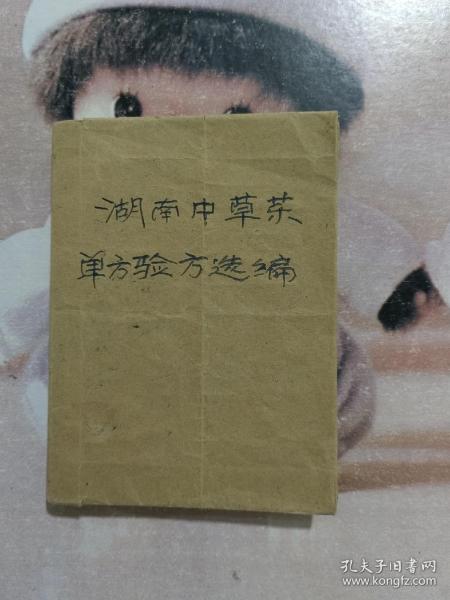 湖南中草药
单方验方选编
孔夫子旧书网
www.kongfz.com